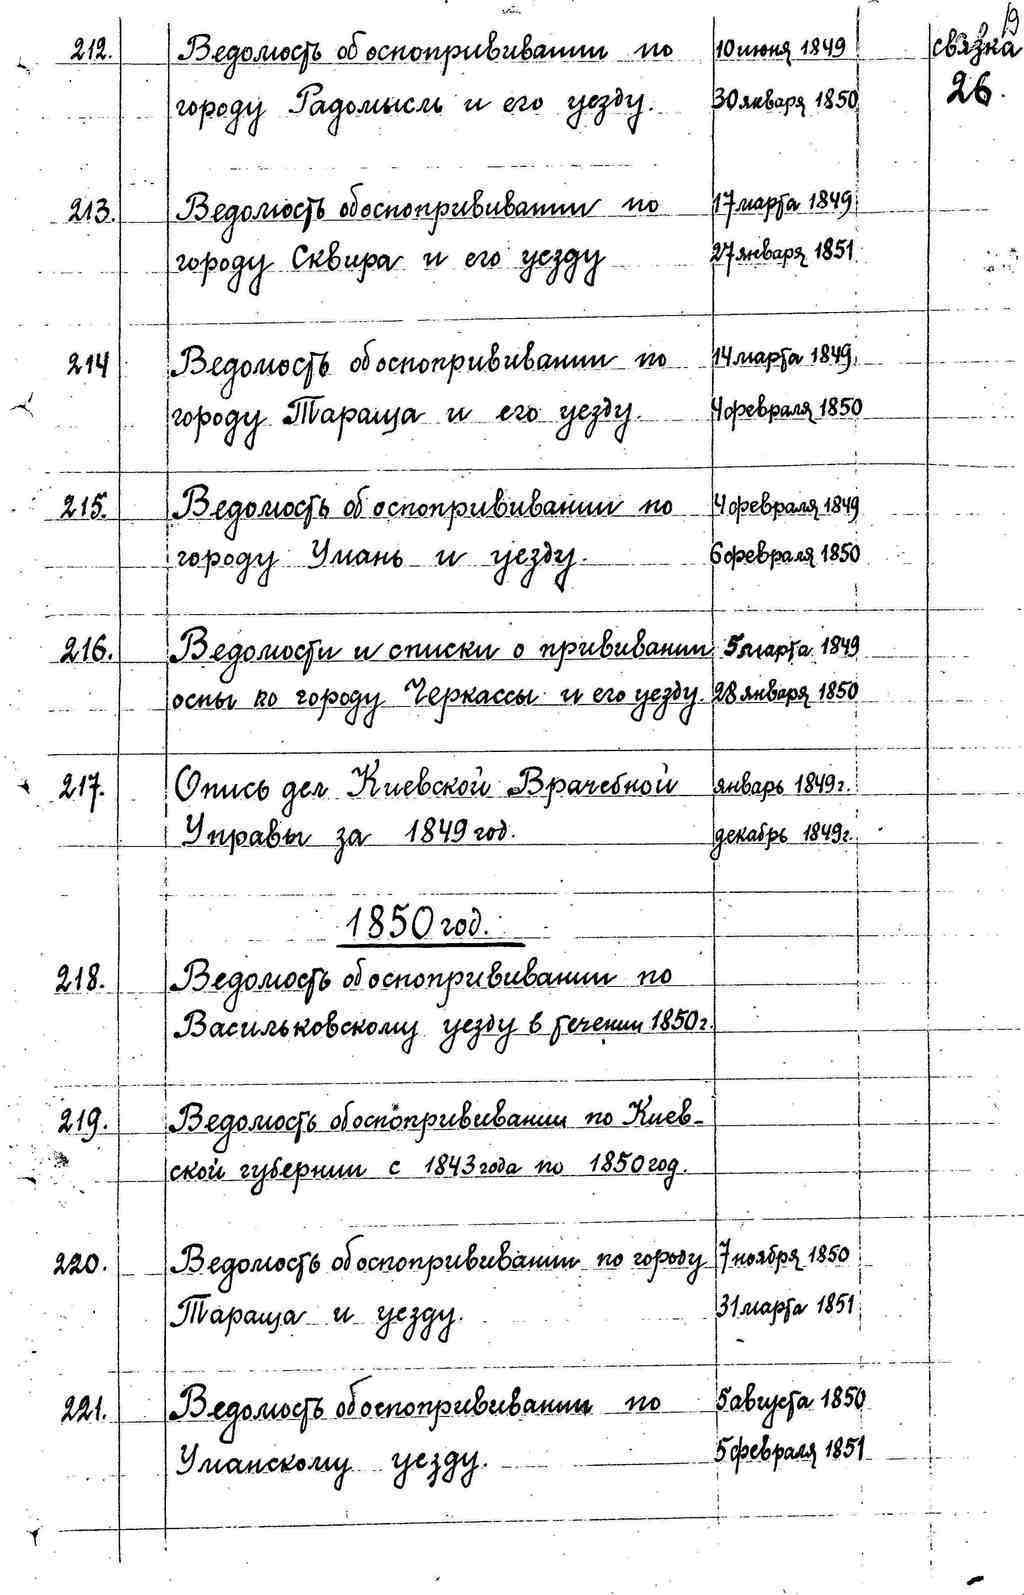 19
212. Ведомость об оспопрививании по 10 июня 1849 связка
городу Радомысль и его уезду. 30 января 1850 26.
213. Ведомость об оспопрививании по 17 марта 1849
городу Сквира и его уезду 27 января 1851
214 Ведомость об оспопрививании по 14 марта 1849
городу Тараща и его уезду. 4 февраля 1850
215. Ведомость об оспопрививании по 4 февраля 1849
городу Умань и уезду. 6 февраля 1850
216. Ведомости и списки о прививании 5 марта 1849
оспы по городу Черкассы и его уезду. 28 января 1850
217. Опись дел Киевской Врачебной январь 1849 г.
Управы за 1849 год. декабрь 1849 г.
1850 год.
218. Ведомость об оспопрививании по
Васильковскому уезду в течении 1850 г.
219. Ведомость об оспопрививании по Киев-
ской губернии с 1843 года по 1850 год.
220. Ведомость об оспопрививании по городу 7 ноября 1850
Тараща и уезду. 31 марта 1851
221. Ведомость об оспопрививании по 5 августа 1850
Уманскому уезду. 5 февраля 1851